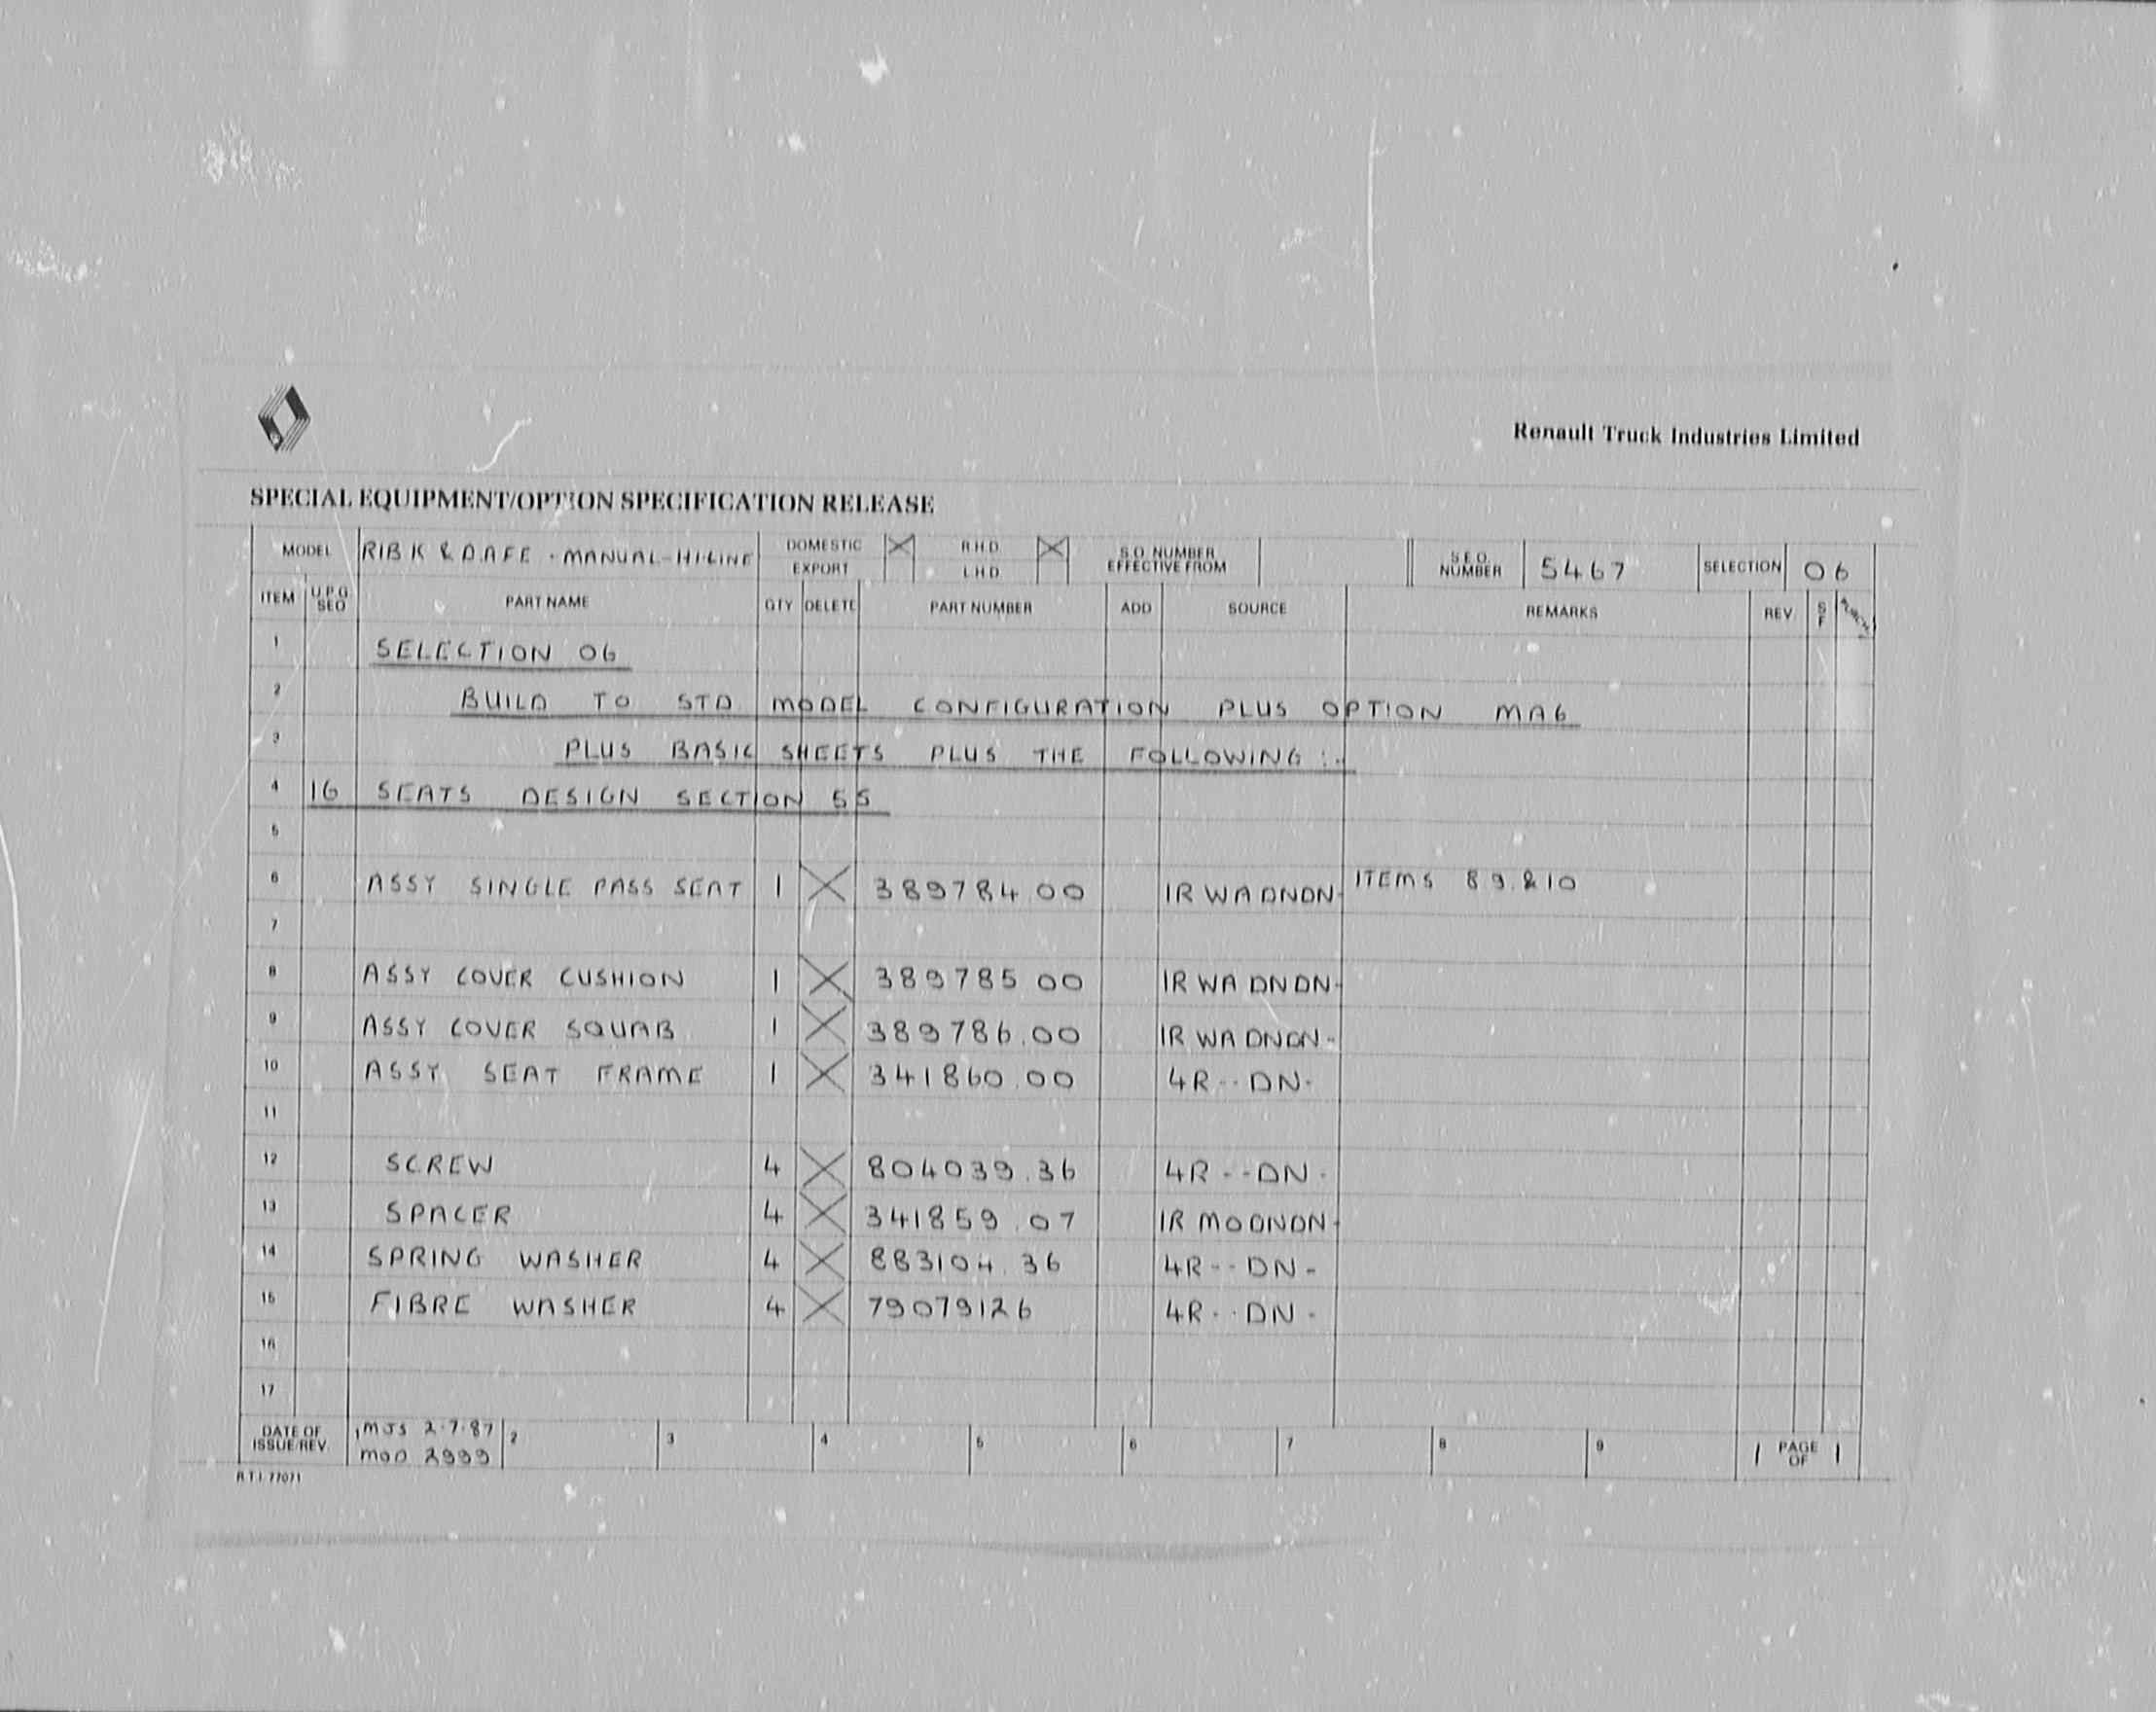 Renault Truck Industries Limited
SPECIAL EQUIPMENT/OPTION SPECIFICATION RELEASE
MODEL RIBK & DAFE - MANUAL-HI-LINE DOMESTIC EXPORT R.H.D. L.H.D. S.O. NUMBER EFFECTIVE FROM S.E.O. NUMBER 5467 SELECTION 06
ITEM U.P.G SEO PART NAME QTY DELETE PART NUMBER ADD SOURCE REMARKS REV. S F
1 SELECTION 06
2 BUILD TO STD MODEL CONFIGURATION PLUS OPTION MA6
3 PLUS BASIC SHEETS PLUS THE FOLLOWING :-
4 16 SEATS DESIGN SECTION 55
5
6 ASSY SINGLE PASS SEAT 1 X 389784.00 1R WA DNDN- ITEMS 8 9 & 10
7
8 ASSY COVER CUSHION 1 X 389785 00 1R WA DNDN-
9 ASSY COVER SQUAB 1 X 389786.00 1R WA DNDN-
10 ASSY SEAT FRAME 1 X 341860.00 4R--DN-
11
12 SCREW 4 X 804039.36 4R--DN-
13 SPACER 4 X 341859.07 1R MODNDN-
14 SPRING WASHER 4 X 883104.36 4R--DN-
15 FIBRE WASHER 4 X 79079126 4R--DN-
16
17
DATE OF ISSUE/REV 1 MJS 2.7.87 2 3 4 5 6 7 8 9 1 PAGE OF 1
MOD 2999
R.T.I. 77071